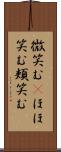 微笑む頰ほほ
笑む頬笑む